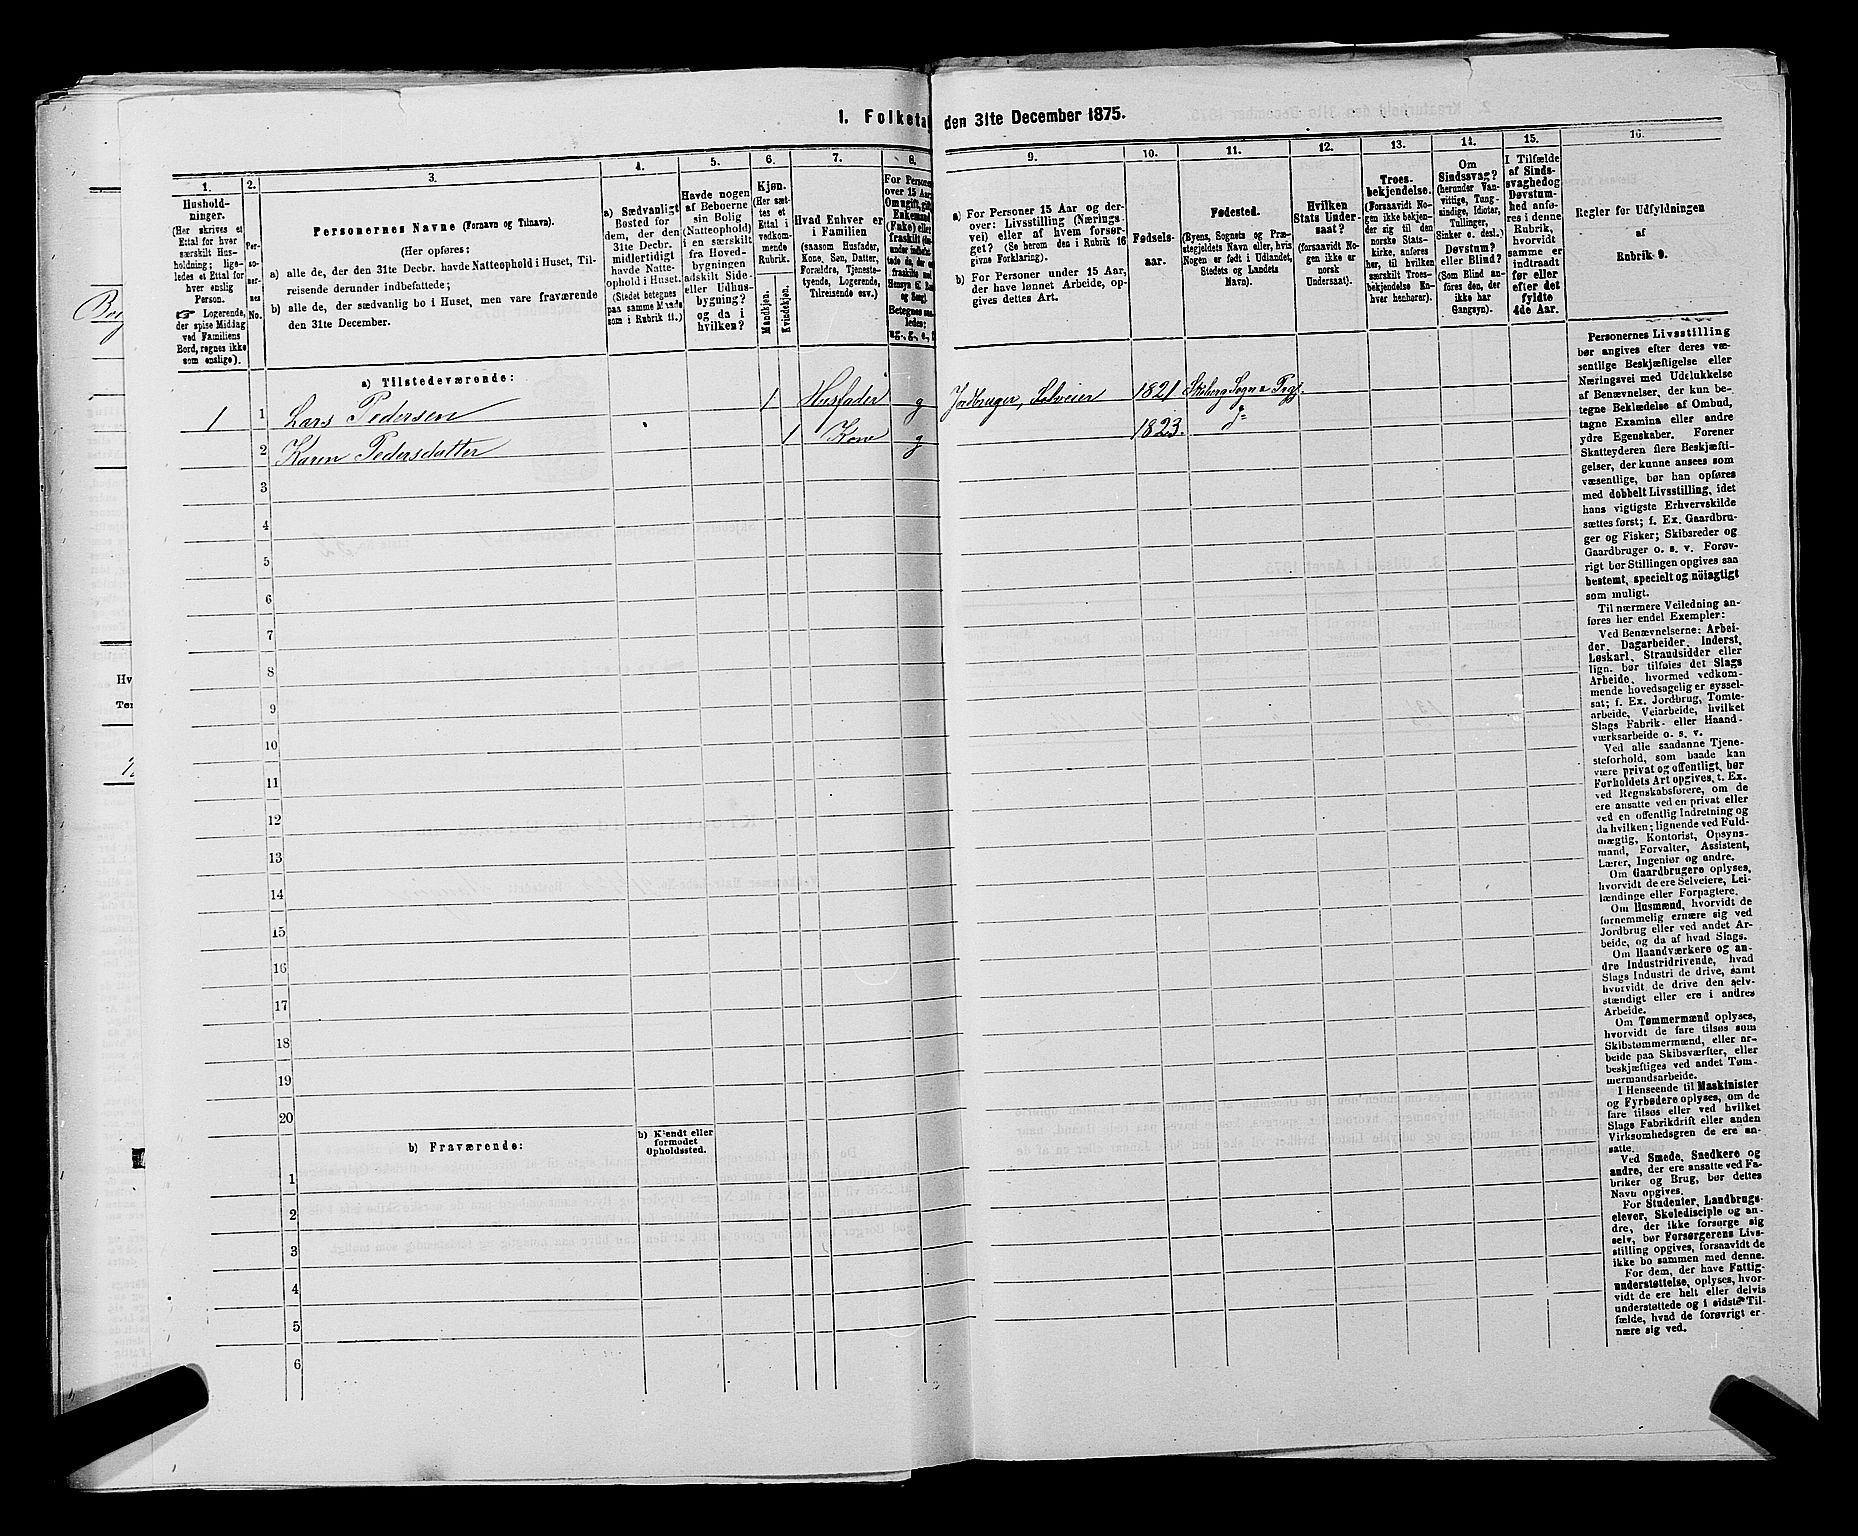 1. Folketal den 31te December 1875.
1.
Hushold-
ninger.
(Her skrives et
Ettal for hver
særskilt Hus-
holdning; lige-
ledes et Ettal for
hver enslig
Person.
☞ Logerende,
der spise Middag
ved Familiens
Bord, regnes ikke
som enslige).
2.
Per-
so-
ner-
nes
No.
3.
Personernes Navne (Fornavn og Tilnavn).
(Her opføres:
a) alle de, der den 31te Decbr. havde Natteophold i Huset, Til-
reisende derunder indbefattede;
b) alle de, der sædvanlig bo i Huset, men vare fraværende
den 31te December.
4.
a) Sædvanligt
Bosted for
dem, der den
31te Decbr.
midlertidigt
havde Natte-
ophold i Huset.
(Stedet betegnes
paa samme Maade
som i Rubrik 11.)
5.
Havde nogen
af Beboerne
sin Bolig
(Natteophold)
i en særskilt
fra Hoved-
bygningen
adskilt Side-
eller Udhus-
bygning?
og da i
hvilken?
6.
Kjøn.
(Her sæt-
tes et
Ettal i
vedkom-
mende
Rubrik.
Mandkjøn.
Kvindekjøn.
7.
Hvad Enhver er
i Familien
(saasom Husfader,
Kone, Søn, Datter,
Forældre, Tjeneste-
tyende, Logerende,
Tilreisende osv.)
8.
For Personer
over 15 Aar:
Om ugift, gift,
Enkemand
(Enke) eller
fraskilt
Betegnes saa-
ledes:
ug., g., e.,
9.
a) For Personer 15 Aar og der-
over: Livsstilling (Nærings-
vei) eller af hvem forsør-
get? (Se herom den i Rubrik 16
givne Forklaring).
b) For Personer under 15 Aar,
der have lønnet Arbeide, op-
gives dettes Art.
10.
Fødsels-
aar.
11.
Fødested.
(Byens, Sognets og Præ-
stegjeldets Navn eller, hvis
Nogen er født i Udlandet,
Stedets og Landets
Navn).
12.
Hvilken
Stats Under-
saat?
(forsaavidt No-
gen ikke er
norsk
Undersaat).
13.
Troes-
bekjendelse.
(Forsaavidt No-
gen ikke bekjen-
der sig til den
norske Stats-
kirke, anføres
her, til hvilken
særskilt Troes-
bekjendelse En-
hver henhører).
14.
Om
Sindssvag?
(herunder Van-
vittige, Tung-
sindige, Idioter,
Tullinger,
Sinker o. desl.)
Døvstum?
eller Blind?
(Som Blind an-
føres den, der
ikke har
Gangsyn).
15.
I Tilfælde
af Sinds-
svaghed og
Døvstum-
hed anfø-
res i denne
Rubrik,
hvorvidt
samme er
indtraadt
før eller
efter det
fyldte
4de Aar.
16.
Regler for Udfyldningen
af
Rubrik 9.
a) Tilstedeværende:
1 1 Lars Pedersen 1 Husfader g Jordbruger, Selveier 1821 Skiberg Sogn & Prgj.
2 Karen Pedersdatter 1 Kone g 1823. do
3
4
5
6
7
8
9
10
11
12
13
14
15
16
17
18
19
20
b) Fraværende:
b) Kjendt eller
formodet
Opholdssted.
1
2
3
4
5
6
Personernes Livsstilling
bør angives efter deres væ-
sentlige Beskjæftigelse eller
Næringsvei med Udelukkelse
af Benævnelser, der kun be-
tegne Beklædelse af Ombud,
tagne Examina eller andre
ydre Egenskaber. Forener
Skatteyderen flere Beskjæfti-
gelser, der kunne ansees som
væsentlige, bør han opføres
med dobbelt Livsstilling, idet
hans vigtigste Erhvervskilde
sættes først; f. Ex. Gaardbru-
ger og Fisker; Skibsreder og
Gaardbruger o. s. v. Forøv-
rigt bør Stillingen opgives saa
bestemt, specielt og nöiagtigt
som muligt.
Til nærmere Veiledning an-
føres her endel Exempler:
Ved Benævnelserne: Arbei-
der, Dagarbeider, Inderst,
Løskarl, Strandsidder eller
lign. bør tilføies det Slags
Arbeide, hvormed vedkom-
mende hovedsagelig er syssel-
sat; f. Ex. Jordbrug, Tomte-
arbeide, Veiarbeide, hvilket
Slags Fabrik- eller Haand-
værksarbeide o. s. v.
Ved alle saadanne Tjene-
steforhold, som baade kan
være privat og offentligt, bør
Forholdets Art opgives, t. Ex.
ved Regnskabsførere, om de
ere ansatte ved en privat eller
ved en offentlig Indretning og
da hvilken; lignende ved Fuld-
mægtig, Kontorist, Opsyns-
mand, Forvalter, Assistent,
Lærer, Ingeniør og andre.
Om Gaardbrugere oplyses,
hvorvidt de ere Selveiere, Lei-
lændinge eller Forpagtere.
Om Husmænd, hvorvidt de
fornemmelig ernære sig ved
Jordbrug eller ved andet Ar-
beide, og da af hvad Slags.
Om Haandværkere og an-
dre Industridrivende, hvad
Slags Industri de drive, samt
hvorvidt de drive den selv-
stændigt eller ere i andres
Arbeide.
Om Tømmermænd oplyses,
hvorvidt de fare tilsøs som
Skibstømmermænd, eller ar-
beide paa Skibsværfter, eller
beskjæftiges ved andet Tøm-
mermandsarbeide.
I Henseende til Maskinister
og Fyrbødere oplyses, om de
fare tilsøs eller ved hvilket
Slags Fabrikdrift eller anden
Virksomhedsgren de ere an-
satte.
Ved Smede, Snedkere og
andre, der ere ansatte ved Fa-
briker og Brug, bør dettes
Navn opgives.
For Studenter, Landbrugs-
elever, Skoledisciple og an-
dre, der ikke forsørge sig
selv, bør Forsørgerens Livs-
stilling opgives, forsaavidt de
ikke bo sammen med denne.
For dem, der have Fattig-
understøttelse, oplyses, hvor-
vidt de ere helt eller delvis
understøttede og i sidste Til-
fælde, hvad de forøvrigt er-
nære sig ved.